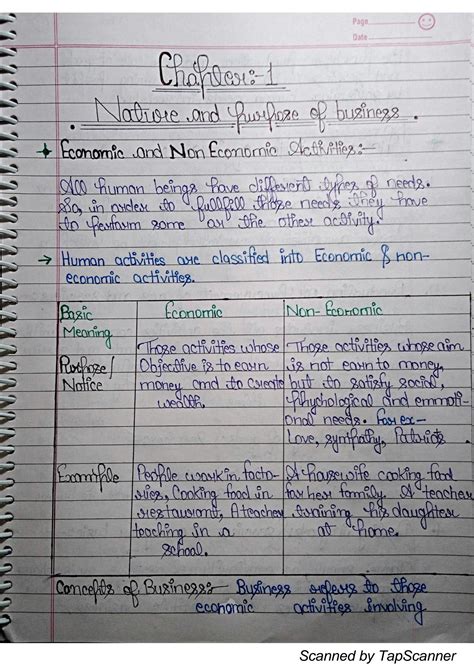 Page
Date
Chapter:-1
Nature and purpose of business.
Economic and Non Economic Activities:-
All human beings have different types of needs.
So, in order to fullfill those needs they have
to perform some or the other activity.
→ Human activities are classified into Economic & non-
economic activities.
Basic Economic Non-Economic
Meaning
Those activities whose Those activities whose aim
Purpose/ Objective is to earn is not earn to money,
Notice money and to create but to satisfy social,
wealth. phychological and emmoti-
onal needs. For ex-
Love, sympathy, Patriotic
Example People work in facto- A housewife cooking food
ries, Cooking food in for her family. A teacher
restaurant, A teacher training his daughter
teaching in a at home.
school.
Concepts of Business:- Business refers to those
economic activities involving
Scanned by TapScanner